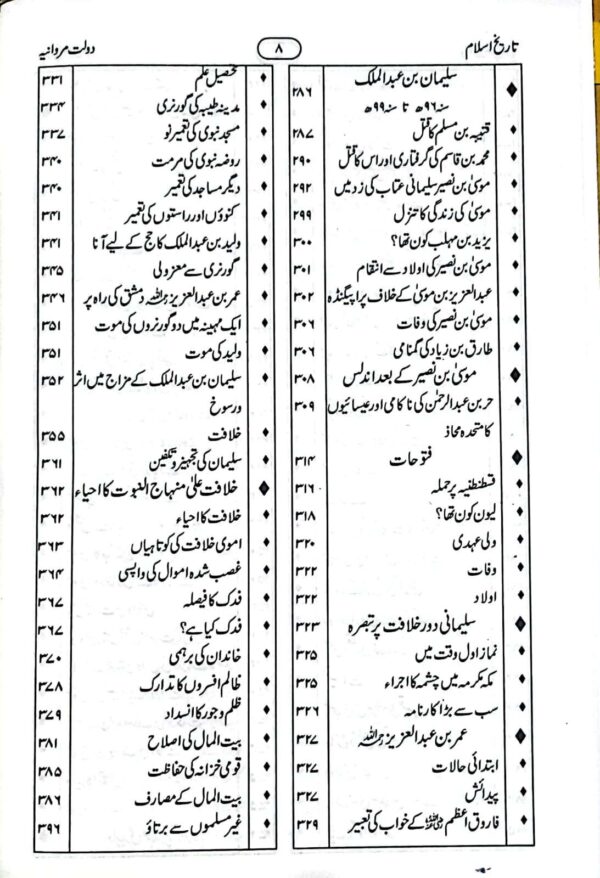 تاریخ اسلام
۸
دولت مروانیہ
سلیمان بن عبدالملک ۲۸۶
سنہ ۹۶ھ تا سنہ ۹۹ھ
قتیبہ بن مسلم کا قتل ۲۸۷
محمد بن قاسم کی گرفتاری اور اس کا قتل ۲۹۰
موسیٰ بن نصیر سلیمانی عتاب کی زد میں ۲۹۲
موسیٰ کی زندگی کا تنزل ۲۹۹
یزید بن مہلب کون تھا؟ ۳۰۰
موسیٰ بن نصیر کی اولاد سے انتقام ۳۰۱
عبدالعزیز بن موسیٰ کے خلاف پراپیگنڈہ ۳۰۲
موسیٰ بن نصیر کی وفات ۳۰۶
طارق بن زیاد کی گمنامی ۳۰۶
موسیٰ بن نصیر کے بعد اندلس ۳۰۸
حر بن عبدالرحمٰن کی ناکامی اور عیسائیوں ۳۰۹
کا متحدہ محاذ
فتوحات ۳۱۴
قسطنطنیہ پر حملہ ۳۱۶
لیون کون تھا؟ ۳۱۸
ولی عہدی ۳۲۰
وفات ۳۲۲
اولاد ۳۲۲
سلیمانی دور خلافت پر تبصرہ ۳۲۳
نماز اول وقت میں ۳۲۵
مکہ مکرمہ میں چشمہ کا اجراء ۳۲۵
سب سے بڑا کارنامہ ۳۲۶
عمر بن عبدالعزیز رحمہ اللہ ۳۲۷
ابتدائی حالات ۳۲۷
پیدائش ۳۲۷
فاروق اعظم رضی اللہ عنہ کے خواب کی تعبیر ۳۲۹
تحصیل علم ۳۳۱
مدینہ طیبہ کی گورنری ۳۳۴
مسجد نبوی کی تعمیر نو ۳۳۷
روضہ نبوی کی مرمت ۳۴۰
دیگر مساجد کی تعمیر ۳۴۰
کنوؤں اور راستوں کی تعمیر ۳۴۱
ولید بن عبدالملک کا حج کے لیے آنا ۳۴۱
گورنری سے معزولی ۳۴۵
عمر بن عبدالعزیز رحمہ اللہ دمشق کی راہ پر ۳۴۶
ایک مہینہ میں دو گورنروں کی موت ۳۵۱
ولید کی موت ۳۵۱
سلیمان بن عبدالملک کے مزاج میں اثر ۳۵۲
ورسوخ
خلافت ۳۵۵
سلیمان کی تجہیز و تکفین ۳۶۱
خلافت علیٰ منہاج النبوت کا احیاء ۳۶۲
خلافت کا احیاء ۳۶۲
اموی خلافت کی کوتاہیاں ۳۶۳
غصب شدہ اموال کی واپسی ۳۶۴
فدک کا فیصلہ ۳۶۷
فدک کیا ہے؟ ۳۶۷
خاندان کی برہمی ۳۷۰
ظالم افسروں کا تدارک ۳۷۸
ظلم و جور کا انسداد ۳۷۹
بیت المال کی اصلاح ۳۸۱
قومی خزانہ کی حفاظت ۳۸۵
بیت المال کے مصارف ۳۸۶
غیر مسلموں سے برتاؤ ۳۹۶